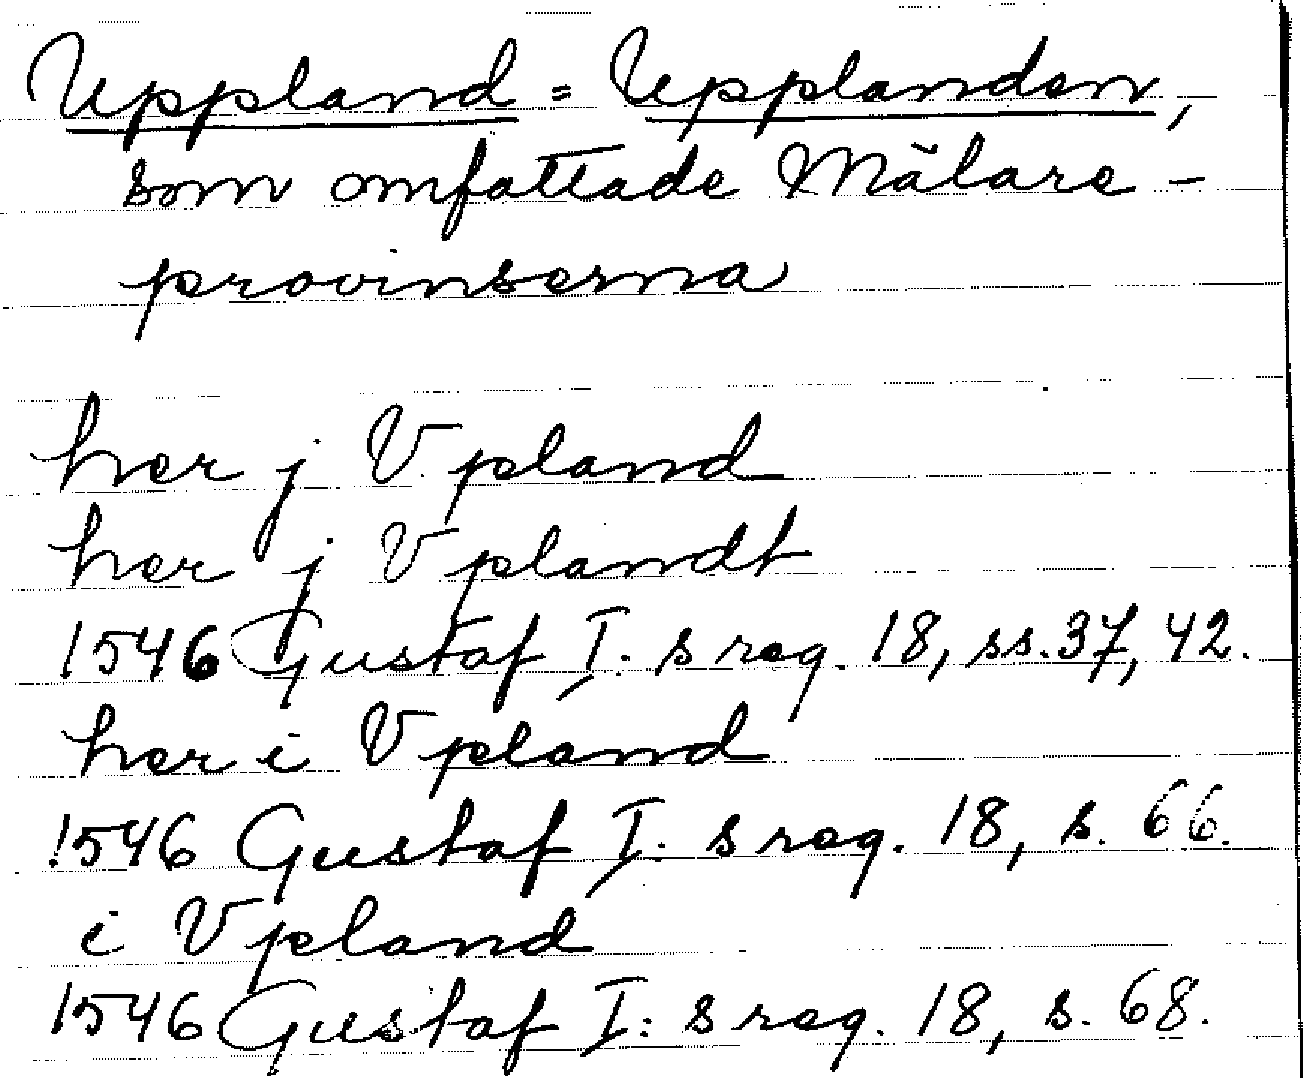 Uppland = Upplanden,
som omfattade Mälare-
provinserna
her j Vpland
her j Vplandt
1546 Gustaf I. s reg. 18, ss. 37, 42.
her i Vpland
1546 Gustaf I: s reg. 18, s. 66.
i Vpland
1546 Gustaf I: s reg. 18, s. 68.